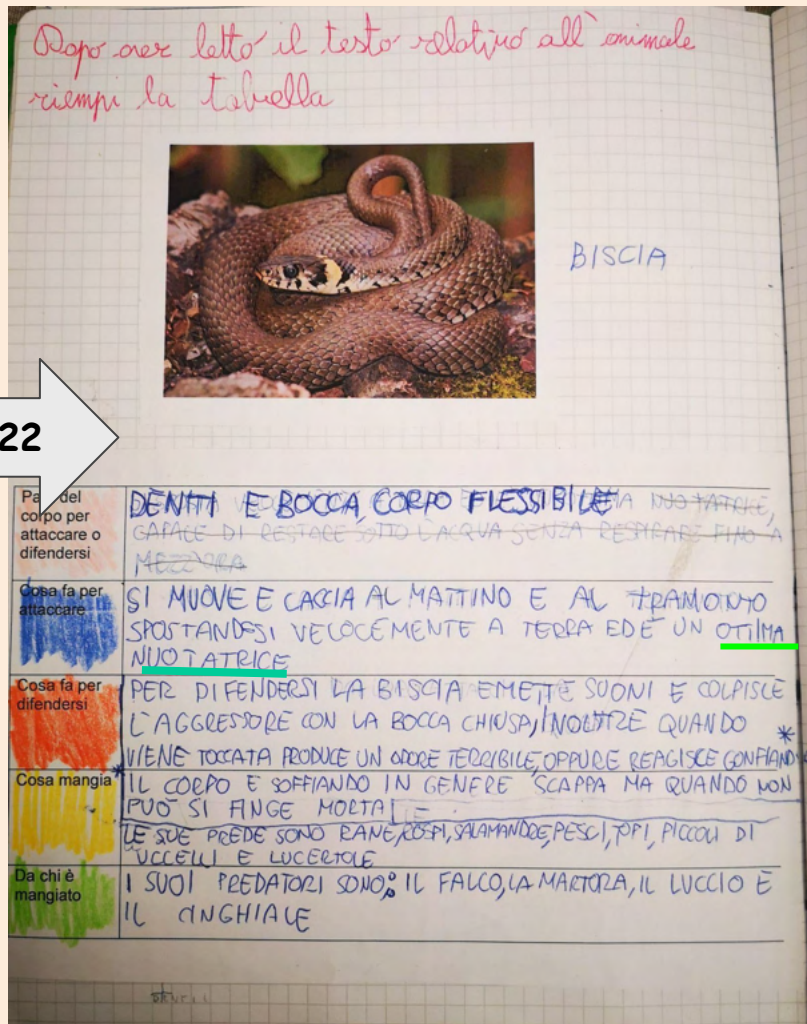 Dopo aver letto il testo relativo all'animale
riempi la tabella
BISCIA
22
Pa del
corpo per
attaccare o
difendersi
DENTI E BOCCA, CORPO FLESSIBILE NUOTATRICE,
CAPACE DI RESTARE SOTTO L'ACQUA SENZA RESPIRARE FINO A
MEZZ'ORA
Cosa fa per
attaccare
SI MUOVE E CACCIA AL MATTINO E AL TRAMONTO
SPOSTANDOSI VELOCEMENTE A TERRA ED È UN OTTIMA
NUOTATRICE
Cosa fa per
difendersi
PER DIFENDERSI LA BISCIA EMETTE SUONI E COLPISCE
L'AGGRESSORE CON LA BOCCA CHIUSA, INOLTRE QUANDO *
VIENE TOCCATA PRODUCE UN ODORE TERRIBILE, OPPURE REAGISCE GONFIANDO
Cosa mangia *
IL CORPO E SOFFIANDO IN GENERE SCAPPA MA QUANDO NON
PUÒ SI FINGE MORTA
LE SUE PREDE SONO RANE, ROSPI, SALAMANDRE, PESCI, TOPI, PICCOLI DI
UCCELLI E LUCERTOLE
Da chi è
mangiato
I SUOI PREDATORI SONO: IL FALCO, LA MARTORA, IL LUCCIO E
IL CINGHIALE